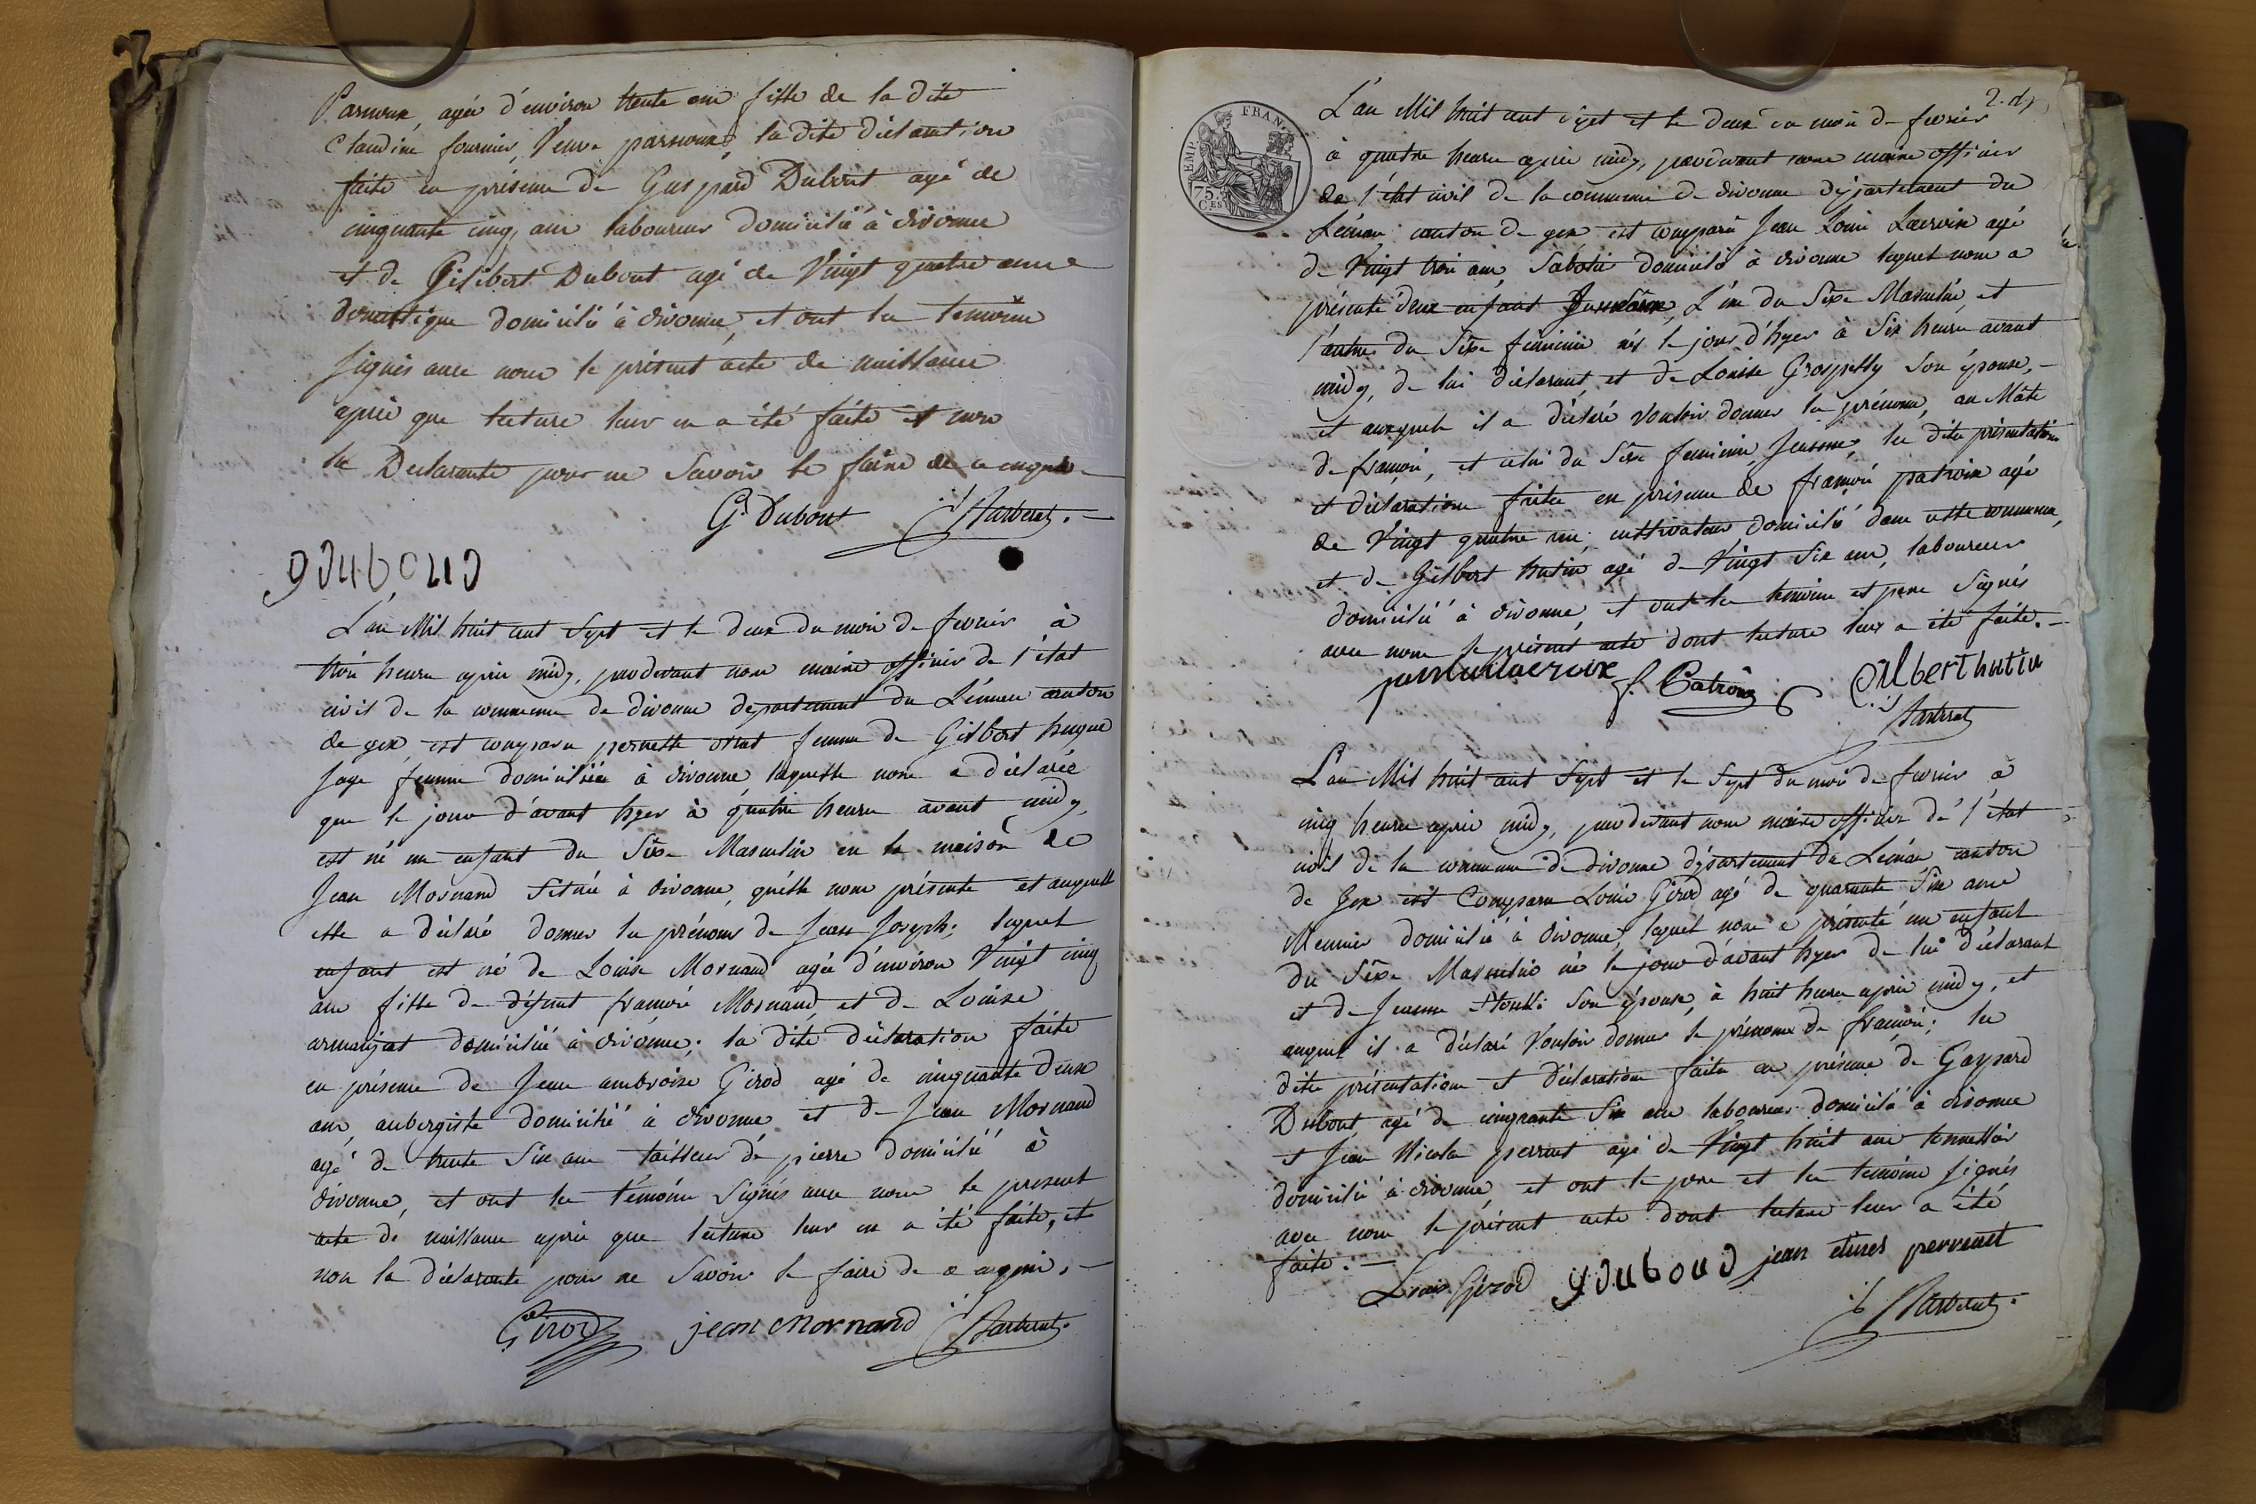 Parnoux, agée d'environ trente ans fille de la dite
Claudine fournier, Veuve parnoux, la dite déclaration
faite en présence de Gaspard Dubout agé de
cinquante cinq ans laboureur domicilié à divonne
et de Gilibert Dubout agé de Vingt quatre ans
domestique domicilié à divonne, et ont les temoins
signés avec nous le présent acte de naissance
après que lecture leur en a été faite et non
la Declarante pour ne Savoir le faire de ce enquise
G. Dubout
gduboud
L'an Mil huit cent Sept et le deux du mois de fevrier à
trois heures après midy, pardevant nous maire officier de l'état
civil de la commune de divonne departement du Léman canton
de gex, est comparu pernette femme de Gilbert hugue
sage femme domiciliée à divonne laquelle nous a déclarée
que le jour d'avant hyer à quatre heures avant midy,
est né un enfant du Sèxe Masculin en la maison de
Jean Mornand Située à divonne, qu'elle nous présente et auquel
elle a déclaré donner les prénoms de Jean Joseph; lequel
enfant est né de Louise Mornand agée d'environ Vingt cinq
ans fille de défunt françois Mornand, et de Louise
armanjat domiciliée à divonne; la dite déclaration faite
en présence de Jean ambroise Girod agé de cinquante deux
ans, aubergiste domicilié à divonne et de Jean Mornand
agé de trente Six ans tailleur de pierre domicilié à
divonne, et ont les témoins Signés avec nous le present
acte de naissance après que lecture leur en a été faite, et
non la déclarante pour ne Savoir le faire de ce enquise.
Girod jean Mornand
2. d
EMP. FRAN.
75. C.ES
L'an Mil huit cent Sept et le Deux du mois de fevrier
à quatre heures après midy, pardevant nous maire officier
de l'état civil de la commune de divonne département du
Léman canton de gex est comparu Jean Louis Lacroix agé
de Vingt trois ans, Sabotier domicilié à divonne lequel nous a
présenté deux enfants Jumeaux, L'un du Sèxe Masculin, et
l'autre du Sèxe féminin nés le jour d'hyer à Six heures avant
midy, de lui déclarant, et de Louise Grospelly Son épouse,
et auxquels il a déclaré Vouloir donner les prénoms, au Mâle
de françois, et celui du Sèxe feminin, Jeanne, les dites présentations
et déclarations faites en présence de françois patroix agé
de Vingt quatre ans, cultivateur domicilié dans cette commune,
et de Gilbert hutin agé de Vingt Six ans, laboureur
domicilié à divonne, et ont les temoins et pere Signés
avec nous le présent acte dont lecture leur a été faite.
f. Patroix Gilbert hutin
L'an Mil huit cent Sept et le Sept du mois de fevrier à
cinq heures après midy, pardevant nous maire officier de l'état
civil de la commune de divonne département du Léman canton
de Gex est Comparu Louis Girod agé de quarante Six ans
Meunier domicilié à divonne, lequel nous a présenté un enfant
du Sèxe Masculin né le jour d'avant hyer de lui déclarant
et de Jeanne Son épouse, à huit heures après midy, et
auquel il a déclaré Vouloir donner le prénom de françois; les
dites présentation et Déclaration faites en présence de Gaspard
Dubout agé de cinquante Six ans laboureur domicilié à divonne
et Jean Nicolas perrenet agé de Vingt huit ans tonnellier
domicilié à divonne, et ont le pere et les temoins signés
avec nous le présent acte dont lecture leur a été
faite.
Louis Girod gduboud jean perrenet